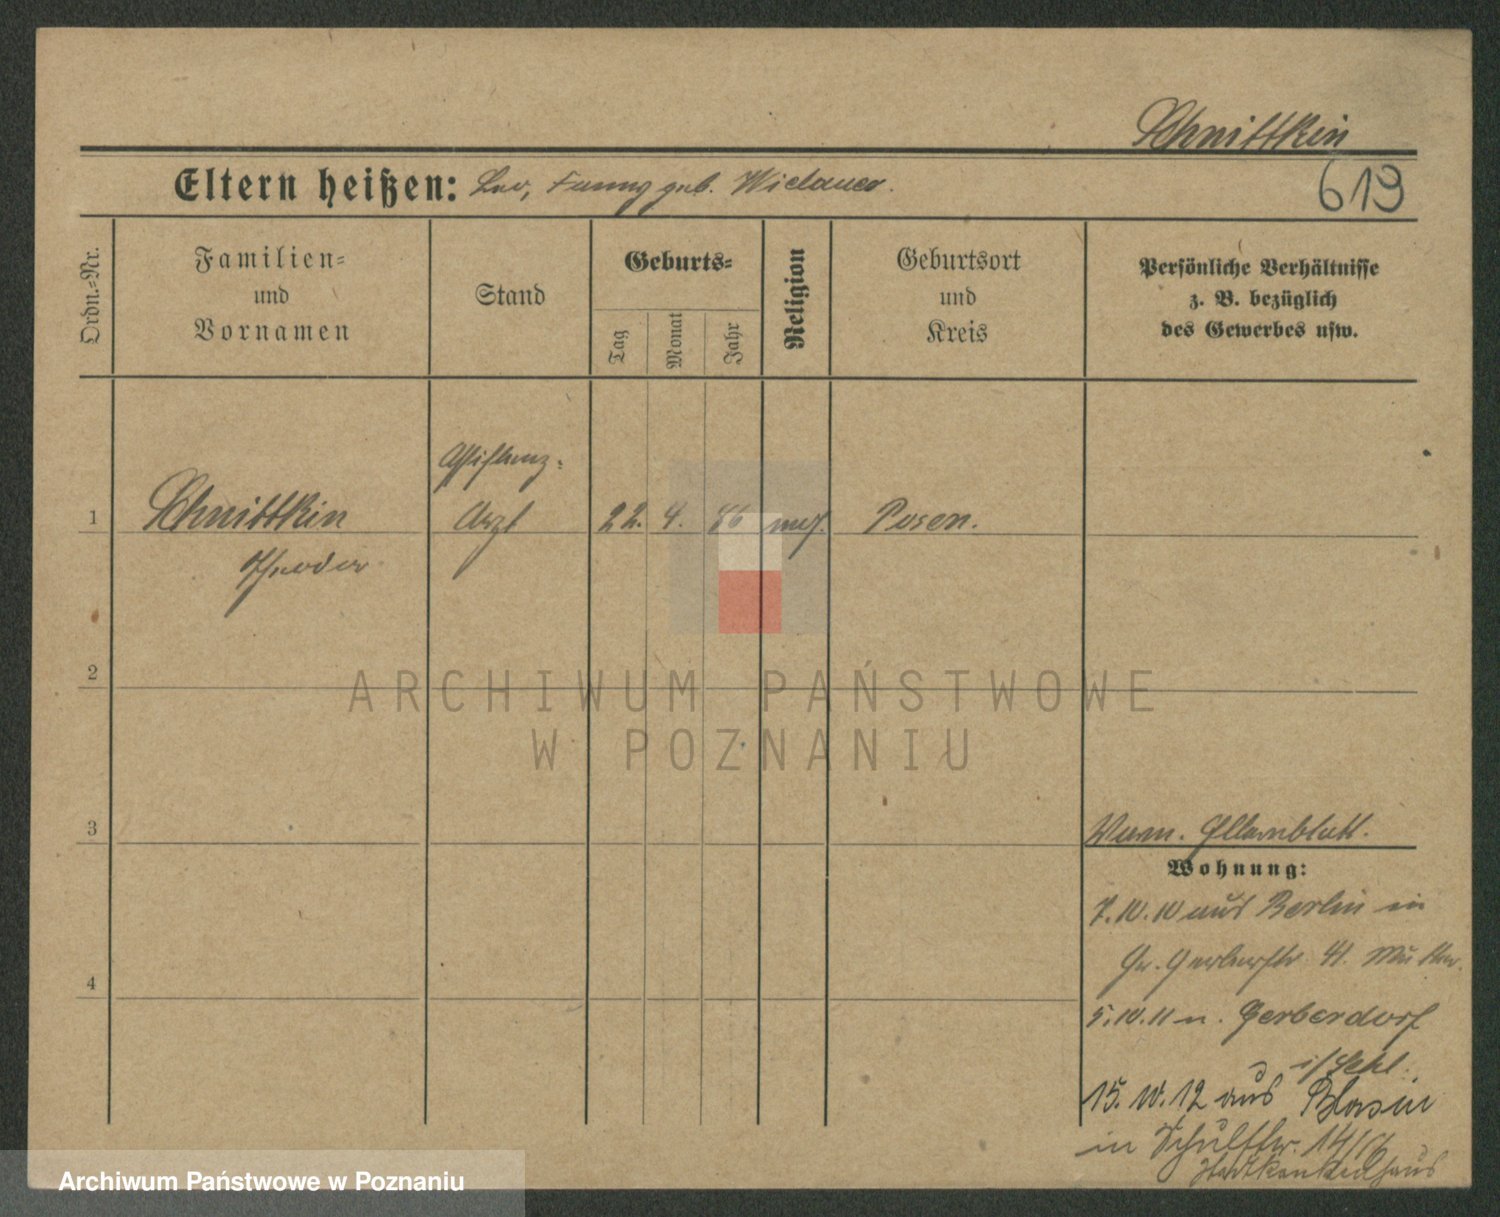 Schnittkin
Eltern heißen: Leo, Fanny geb.
613
Ordn.-Nr.
Familien-
und
Vornamen
Stand
Geburts-
Tag
Monat
Jahr
Religion
Geburtsort
und
Kreis
Persönliche Verhältnisse
z. B. bezüglich
des Gewerbes usw.
Assistenz-
1 Schnittkin Arzt 22. 4. 86 mos. Posen.
Theodor
2
ARCHIWUM PAŃSTWOWE
W POZNANIU
3
Elternblatt.
Wohnung:
7.10.10 aus Berlin in
Gr. Gerberstr. 41. Mutter.
4
5.10.11 n. Gerberdorf
i/Schl.
15.10.12 aus
in Schulstr. 14/16
Stadtkrankenhaus
Archiwum Państwowe w Poznaniu